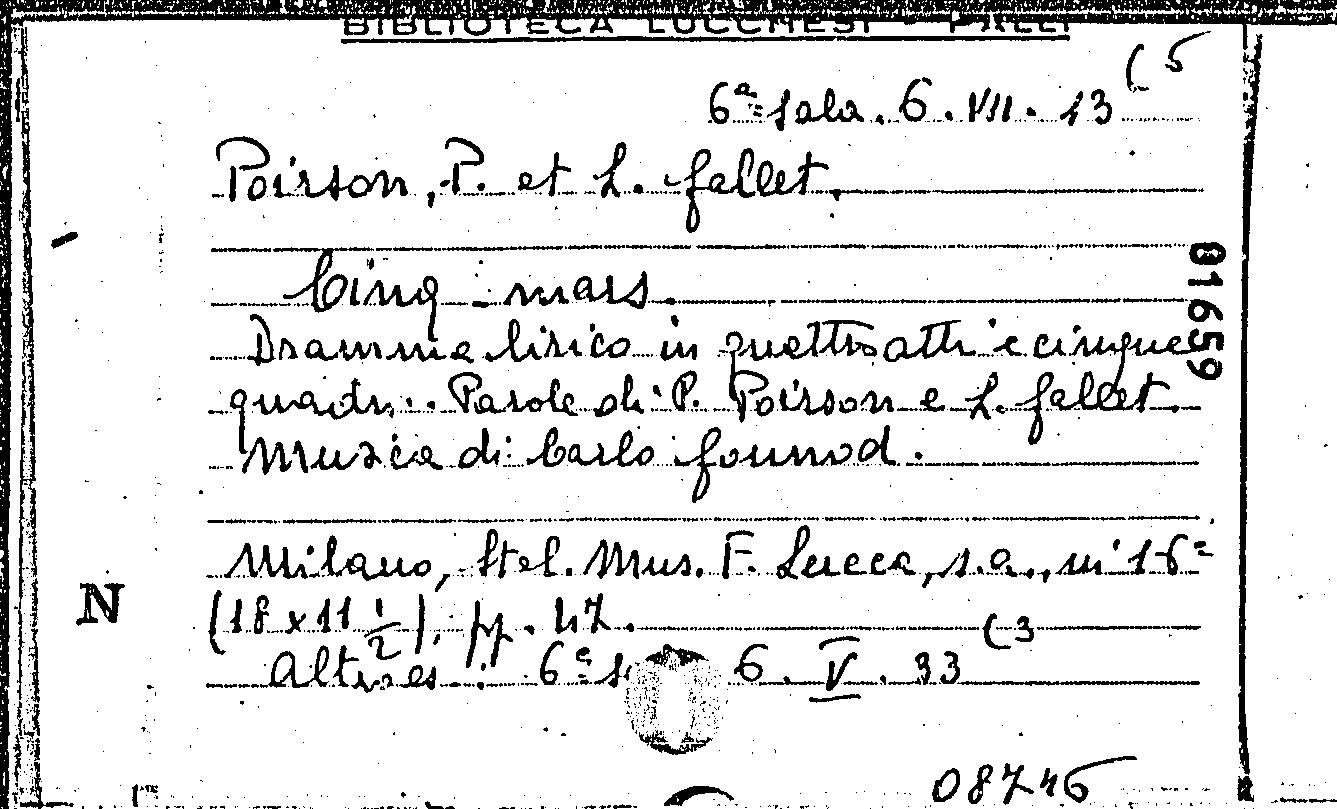 BIBLIOTECA LUCCHESI - PALLI
6ª sala. 6. VII. 13 (5
Poirson, P. et L. Gallet.
Cinq-mars.
Dramma lirico in quattro atti e cinque
quadri. Parole di P. Poirson e L. Gallet.
Musica di Carlo Gounod.
Milano, Stel. Mus. F. Lucca, s.a., in 16°
(18 x 11 1/2), pp. 47.
Altro es.: 6ª 6. V. 33 (3
01659
N
08746